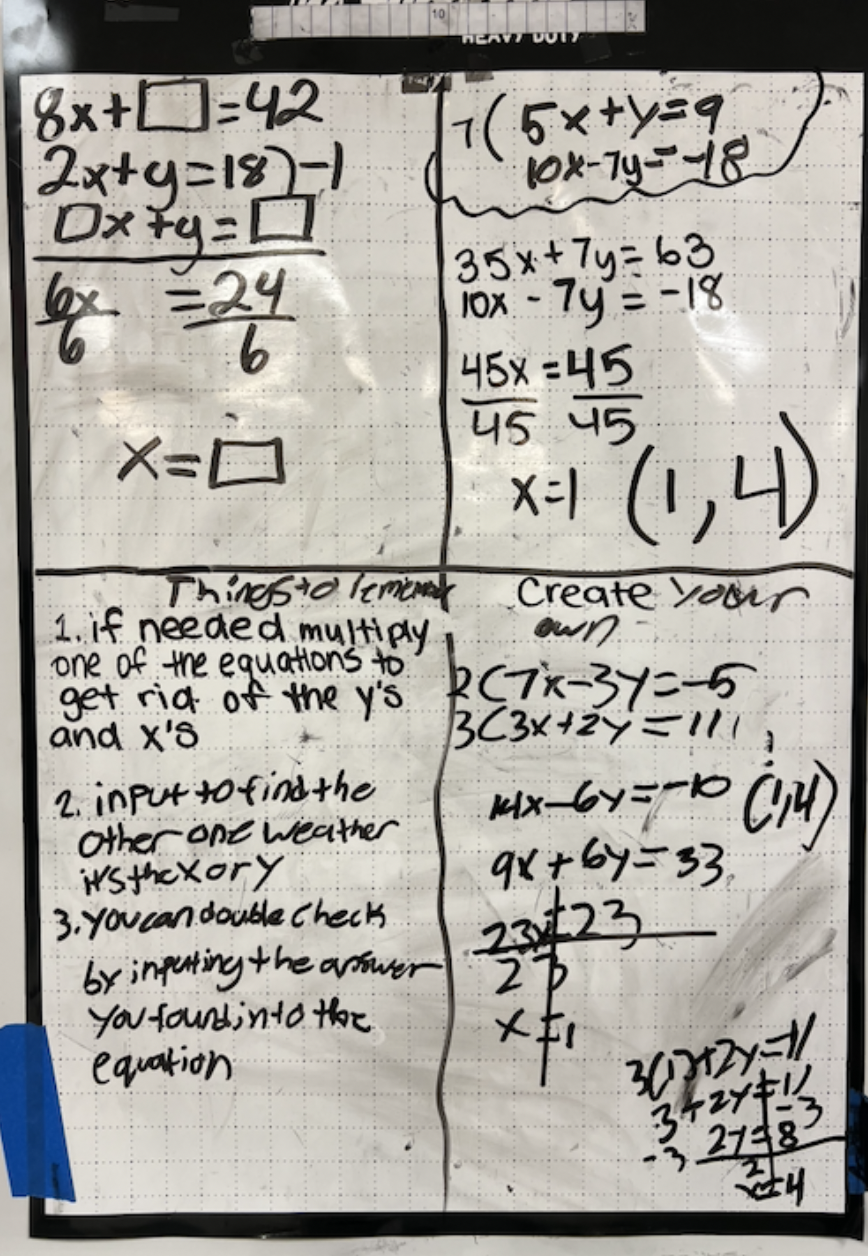 10
HEAVY DUTY
8x+□=42
2x+y=18)-1
□x+y=□
6x =24
6 6
x=□
7( 5x+y=9
10x-7y=-18
35x+7y=63
10x-7y=-18
45x=45
45 45
x=1 (1,4)
Things to
1. if needed multiply
one of the equations to
get rid of the y's
and x's
2. input to find the
other one weather
it's the x or y
3. you can double check
by inputing the answer
you found into the
equation
Create your
own
2(7x-3y=-5
3(3x+2y=11
14x-6y=-10 (1,4)
9x+6y=33
23x=23
23
x=1
3(1)+2y=11
3+2y=11
-3 -3
2y=8
2
y=4